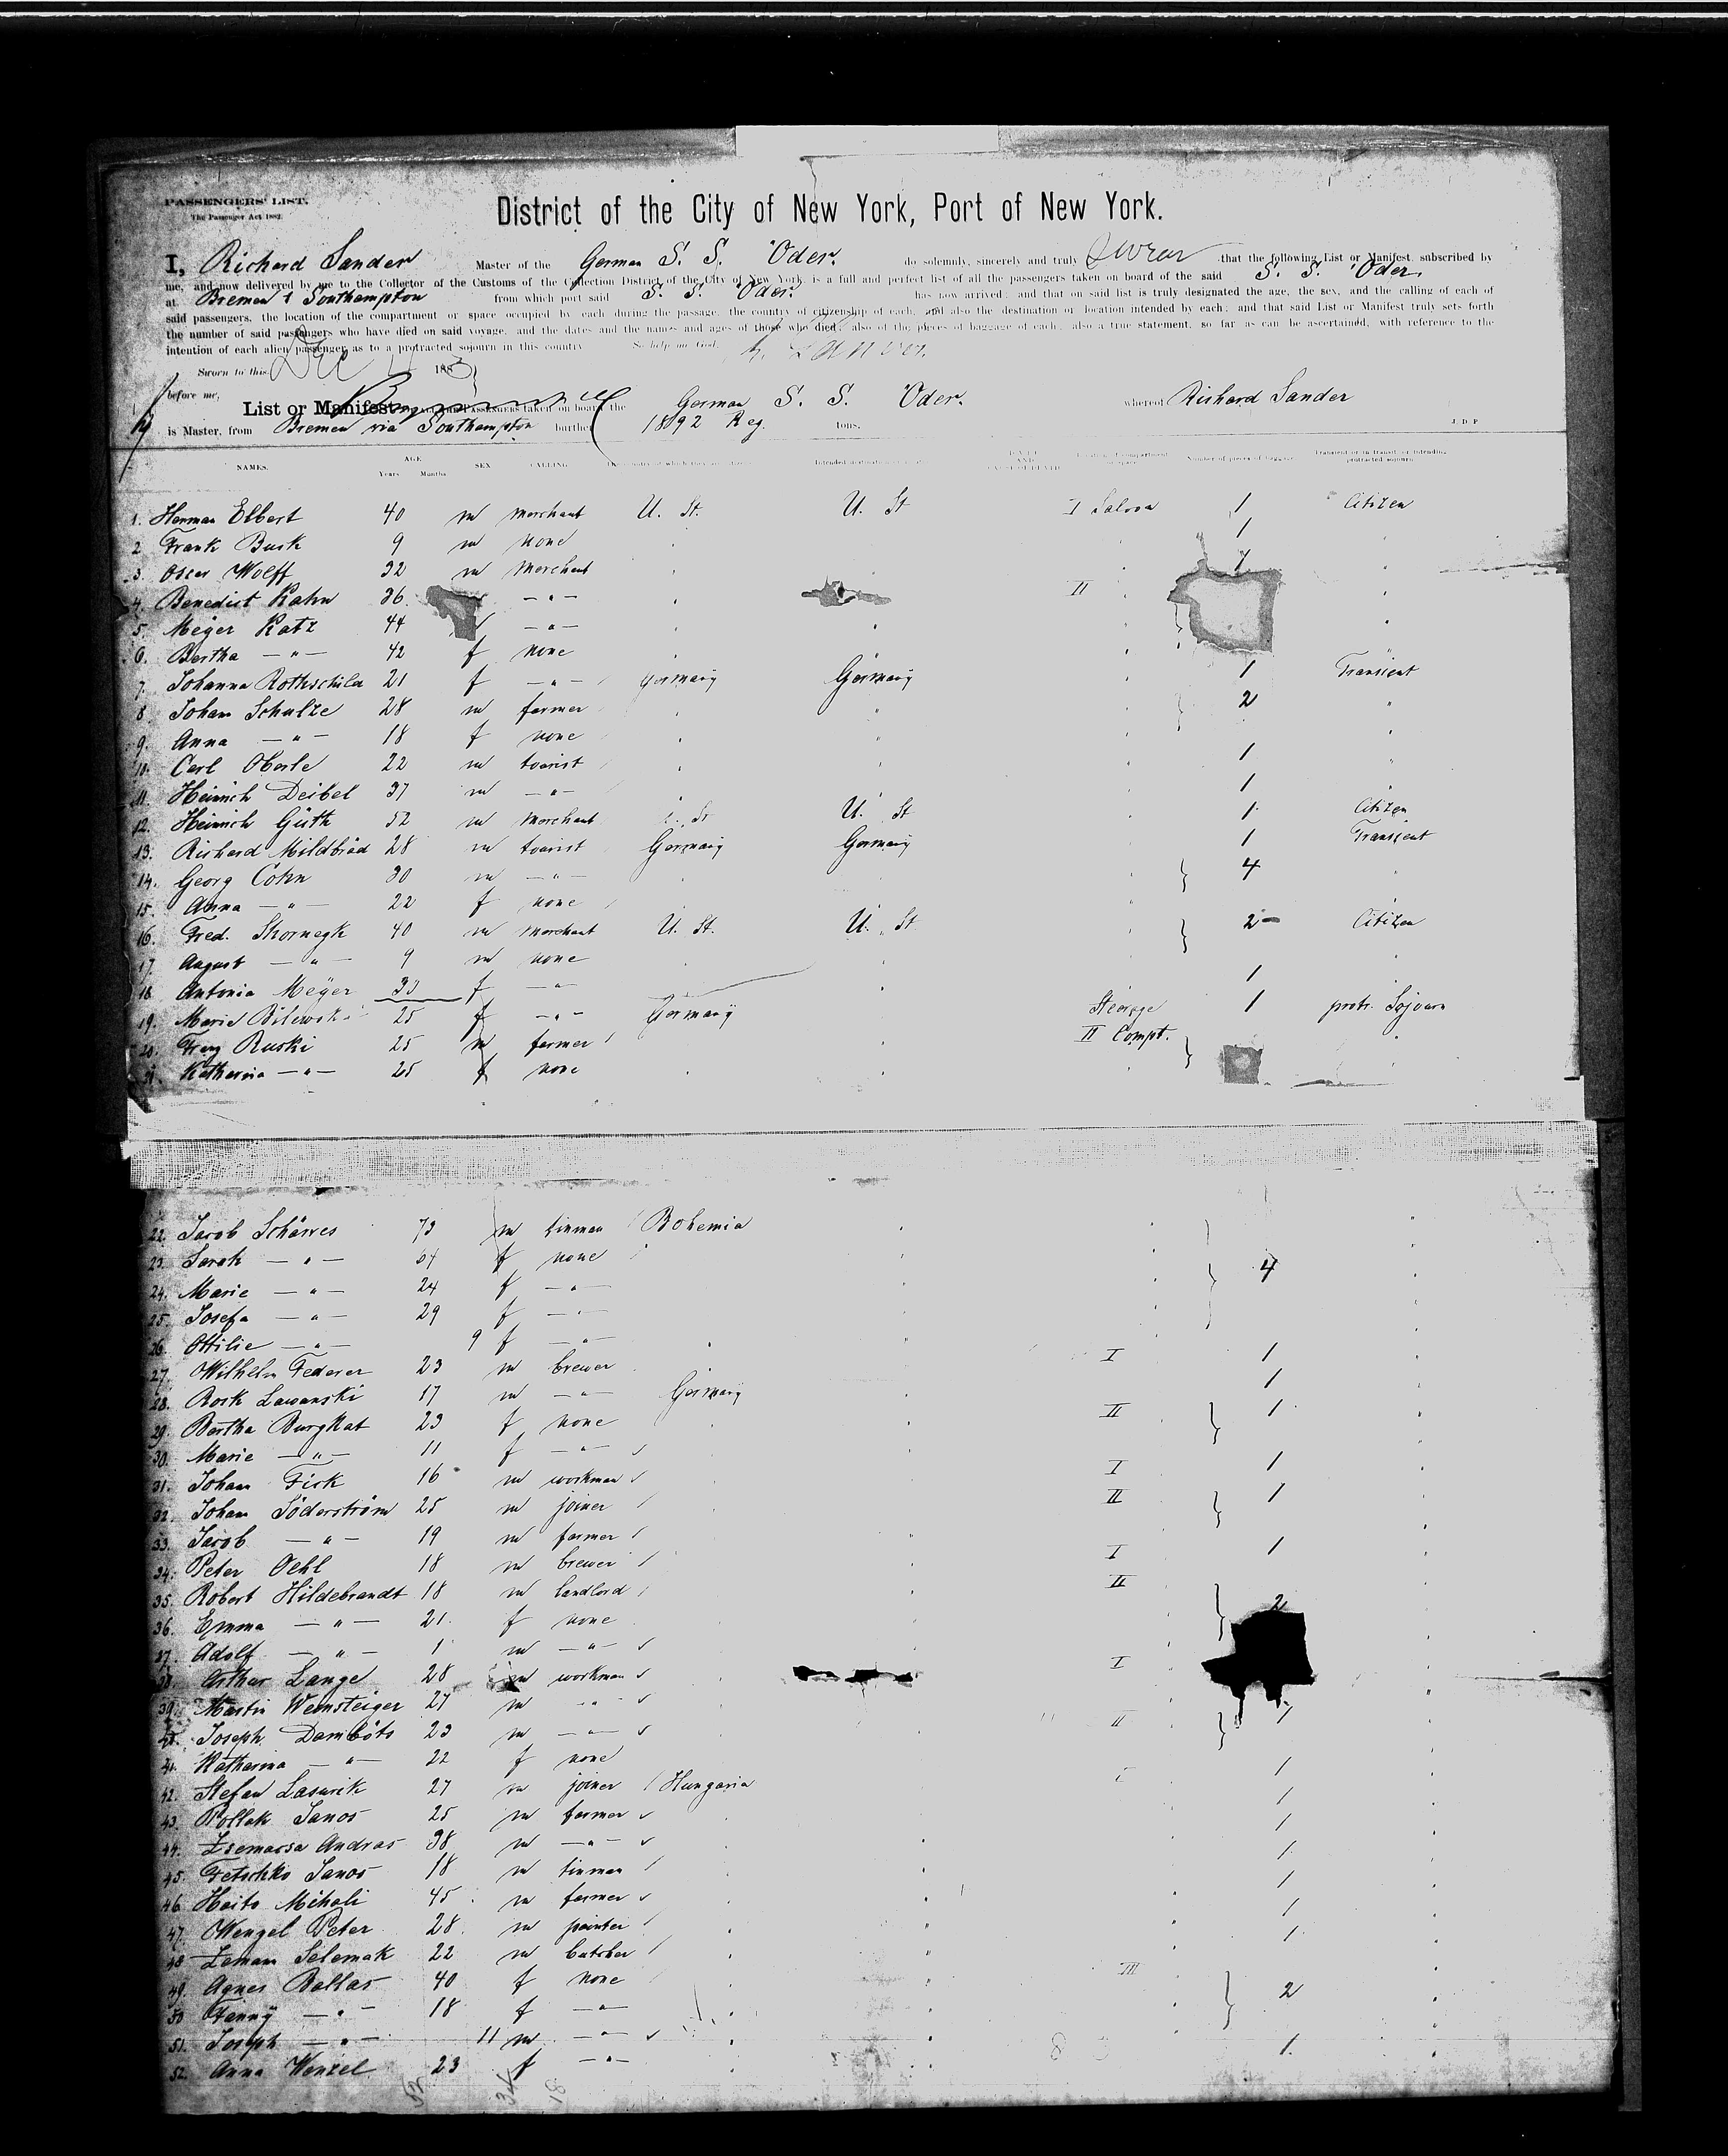 PASSENGERS' LIST.
The Passenger Act 1882.
District of the City of New York, Port of New York.
I, Richard Sander Master of the German S. S. "Oder" do solemnly, sincerely and truly swear that the following List or Manifest, subscribed by
me, and now delivered by me to the Collector of the Customs of the Collection District of the City of New York is a full and perfect list of all the passengers taken on board of the said S. S. "Oder"
at Bremen & Southampton from which port said S. S. "Oder" has now arrived; and that on said list is truly designated the age, the sex, and the calling of each of
said passengers, the location of the compartment or space occupied by each during the passage, the country of citizenship of each, and also the destination or location intended by each; and that said List or Manifest truly sets forth
the number of said passengers who have died on said voyage, and the dates and the names and ages of those who died; also of the pieces of baggage of each, also a true statement, so far as can be ascertained, with reference to the
intention of each alien passenger as to a protracted sojourn in this country. So help me God. R. Sander
Sworn to this Dec 1883
before me,
List or Manifest OF ALL THE PASSENGERS taken on board the German S. S. "Oder" whereof Richard Sander
is Master, from Bremen via Southampton burthen 1892 Reg. tons.
J. D. P.
NAMES. AGE Years Months SEX CALLING Intended destination Location of compartment or space Number of pieces of baggage Transient or in transit or intending protracted sojourn
1. Herman Elbert 40 m merchant U. St. U. St I Saloon 1 Citizen
2. Frank Busk 9 m none " 1 "
3. Oscar Wolff 32 m merchant " 1 "
4. Benedict Kahn 36 — " — " II "
5. Meyer Katz 44 — " — " "
6. Bertha — " — 42 f none " "
7. Johanna Rothschild 21 f — " — Germany Germany 1 Transient
8. Johann Schulze 28 m farmer " " 2 "
9. Anna — " — 18 f none " "
10. Carl Oberle 22 m tourist " " 1 "
11. Heinrich Deibel 37 m — " — " 1 "
12. Heinrich Güth 52 m merchant U. St U. St 1 Citizen
13. Richard Mildbräd 28 m tourist Germany Germany 1 Transient
14. Georg Cohn 30 m — " — " 4 "
15. Anna — " — 22 f none "
16. Fred. Skornegk 40 m merchant U. St. U. St 2 Citizen
17. August — " — 9 m none "
18. Antonia Meyer 33 f — " — " 1
19. Marie Bilewski 25 f — " — Germany Steerage 1 protr. Sojourn
20. Franz Ruski 25 m farmer " II Compt. "
21. Katharina — " — 25 f none " "
22. Jacob Schärves 73 m tinman Bohemia " "
23. Sarah — " — 64 f none " 4 "
24. Marie — " — 24 f — " — " "
25. Josefa — " — 29 f — " — "
26. Ottilie — " — 9 f — " — "
27. Wilhelm Federer 23 m brewer " I 1
28. Rosk Lawanski 17 m — " — Germany " 1
29. Bertha Burgkat 23 f none " II 1 "
30. Marie — " — 11 f — " — "
31. Johann Fick 16 m workman " I 1 "
32. Johan Söderström 25 m joiner " II 1 "
33. Jacob — " — 19 m farmer "
34. Peter Oehl 18 m brewer " I 1 "
35. Robert Hildebrandt 18 m landlord " II 2 "
36. Emma — " — 21 f none "
37. Adolf — " — 1 m — " — "
38. Arthur Lange 28 m workman I "
39. Martin Weinsteiger 27 m — " — "
40. Joseph Dambots 23 m — " — " II 1 "
41. Katharina — " — 22 f none "
42. Stefan Lasurik 27 m joiner Hungaria I 1
43. Pollak Janos 25 m farmer 1
44. Zsemarsa Andras 38 m — " — " 1 "
45. Fetschko Janos 18 m tinman " 1 "
46. Haito Mihali 45 m farmer " 1 "
47. Wenzel Peter 28 m painter " 1 "
48. Zeman Selemak 22 m butcher " 1 "
49. Agnes Ballas 40 f none " III 2 "
50. Fanny — " — 18 f — " — " "
51. Joseph — " — 11 m — " — " "
52. Anna Wenzel 23 f — " — " 1. "
52 34 18